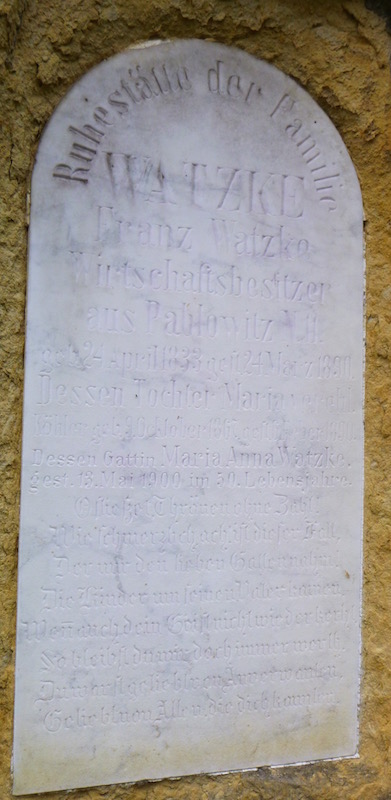 Ruhestätte der Familie
WATZKE
Franz Watzke
Wirtschaftsbesitzer
aus Pablowitz
geb. 24. April 1838 gest. 24. März 1890.
Dessen Tochter Maria
Köhler geb.
Dessen Gattin Maria Anna Watzke,
gest. 13. Mai 1900 im 59. Lebensjahre.
O fließe Thränen ohne Zahl!
Wie schmerzlich ach, ist dieser Fall,
Der mir den lieben Gatten nahm,
Die Kinder um seinen Vater kamen,
Wenn auch dein Geist nicht wiederkehrt
So bleibst du mir doch immer werth.
Du warst geliebt von
Geliebt von Allen, die dich kannten.